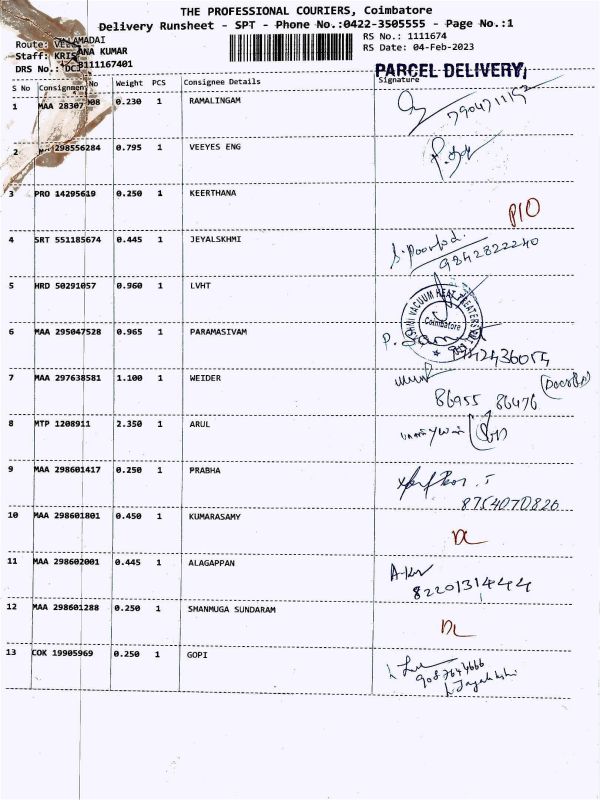 THE PROFESSIONAL COURIERS, Coimbatore
Delivery Runsheet - SPT - Phone No.:0422-3505555 - Page No.:1
Route: AMADAI
RS No.: 1111674
Staff: KRIS ANA KUMAR
RS Date: 04-Feb-2023
DRS No.: 8111167401
PARCEL DELIVERY
S No Consignment No Weight PCS Consignee Details Signature
1 MAA 28307 908 0.230 1 RAMALINGAM
2 298556284 0.795 1 VEEYES ENG
3 PRO 14295619 0.250 1 KEERTHANA
P10
4 SRT 551185674 0.445 1 JEYALSKHMI
9842822240
5 HRD 50291057 0.960 1 LVHT
VACUUM HEAT TREATERS
Coimbatore
6 MAA 295047528 0.965 1 PARAMASIVAM
7 MAA 297638581 1.100 1 WEIDER
86955 86476
8 MTP 1208911 2.350 1 ARUL
9 MAA 298601417 0.250 1 PRABHA
8754070826
10 MAA 298601801 0.450 1 KUMARASAMY
DL
11 MAA 298602001 0.445 1 ALAGAPPAN
8220131444
12 MAA 298601288 0.250 1 SHANMUGA SUNDARAM
DL
13 COK 19905969 0.250 1 GOPI
9087644666